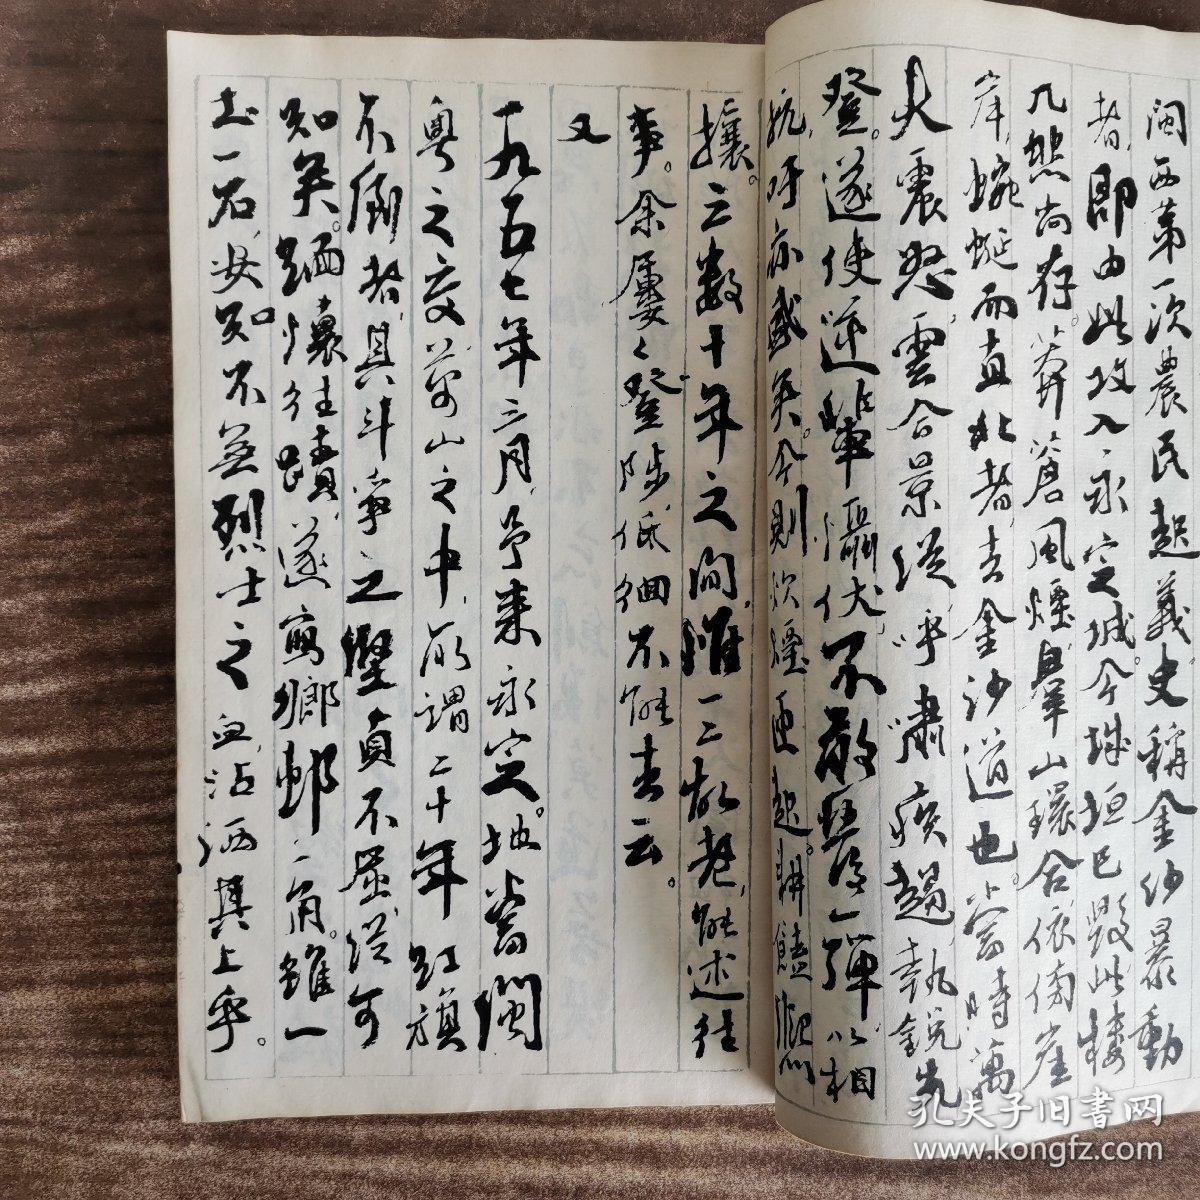 闽西第一次農民起義史稱金沙暴動
者，即由此攻入永定城。今城垣已毀，此樓
兀然尚存。莽蒼風煙，羣山環合，依傍崖
岸，蜿蜒而直北者，去金沙道也。當時萬
夫震怒，雲合景從，呼嘯疾趨，執銳先
登。遂使逆軍懾伏，不敢發一彈以相
抗，吁亦盛矣。今則炊煙四起，耕饁熙
攘。之數十年之间，惟一二故老，能述往
事。余屢々登陟，低佪不能去云。
又
一九五七年三月，予來永定。地當閩
粤之交，萬山之中，所謂二十年红旗
不倒者，其斗爭之堅貞不屈從可
知矣。緬懷往蹟，遂寫鄉邨一角。雖一
土一石，安知不為烈士之血沾洒其上乎。
孔夫子旧书网
www.kongfz.com